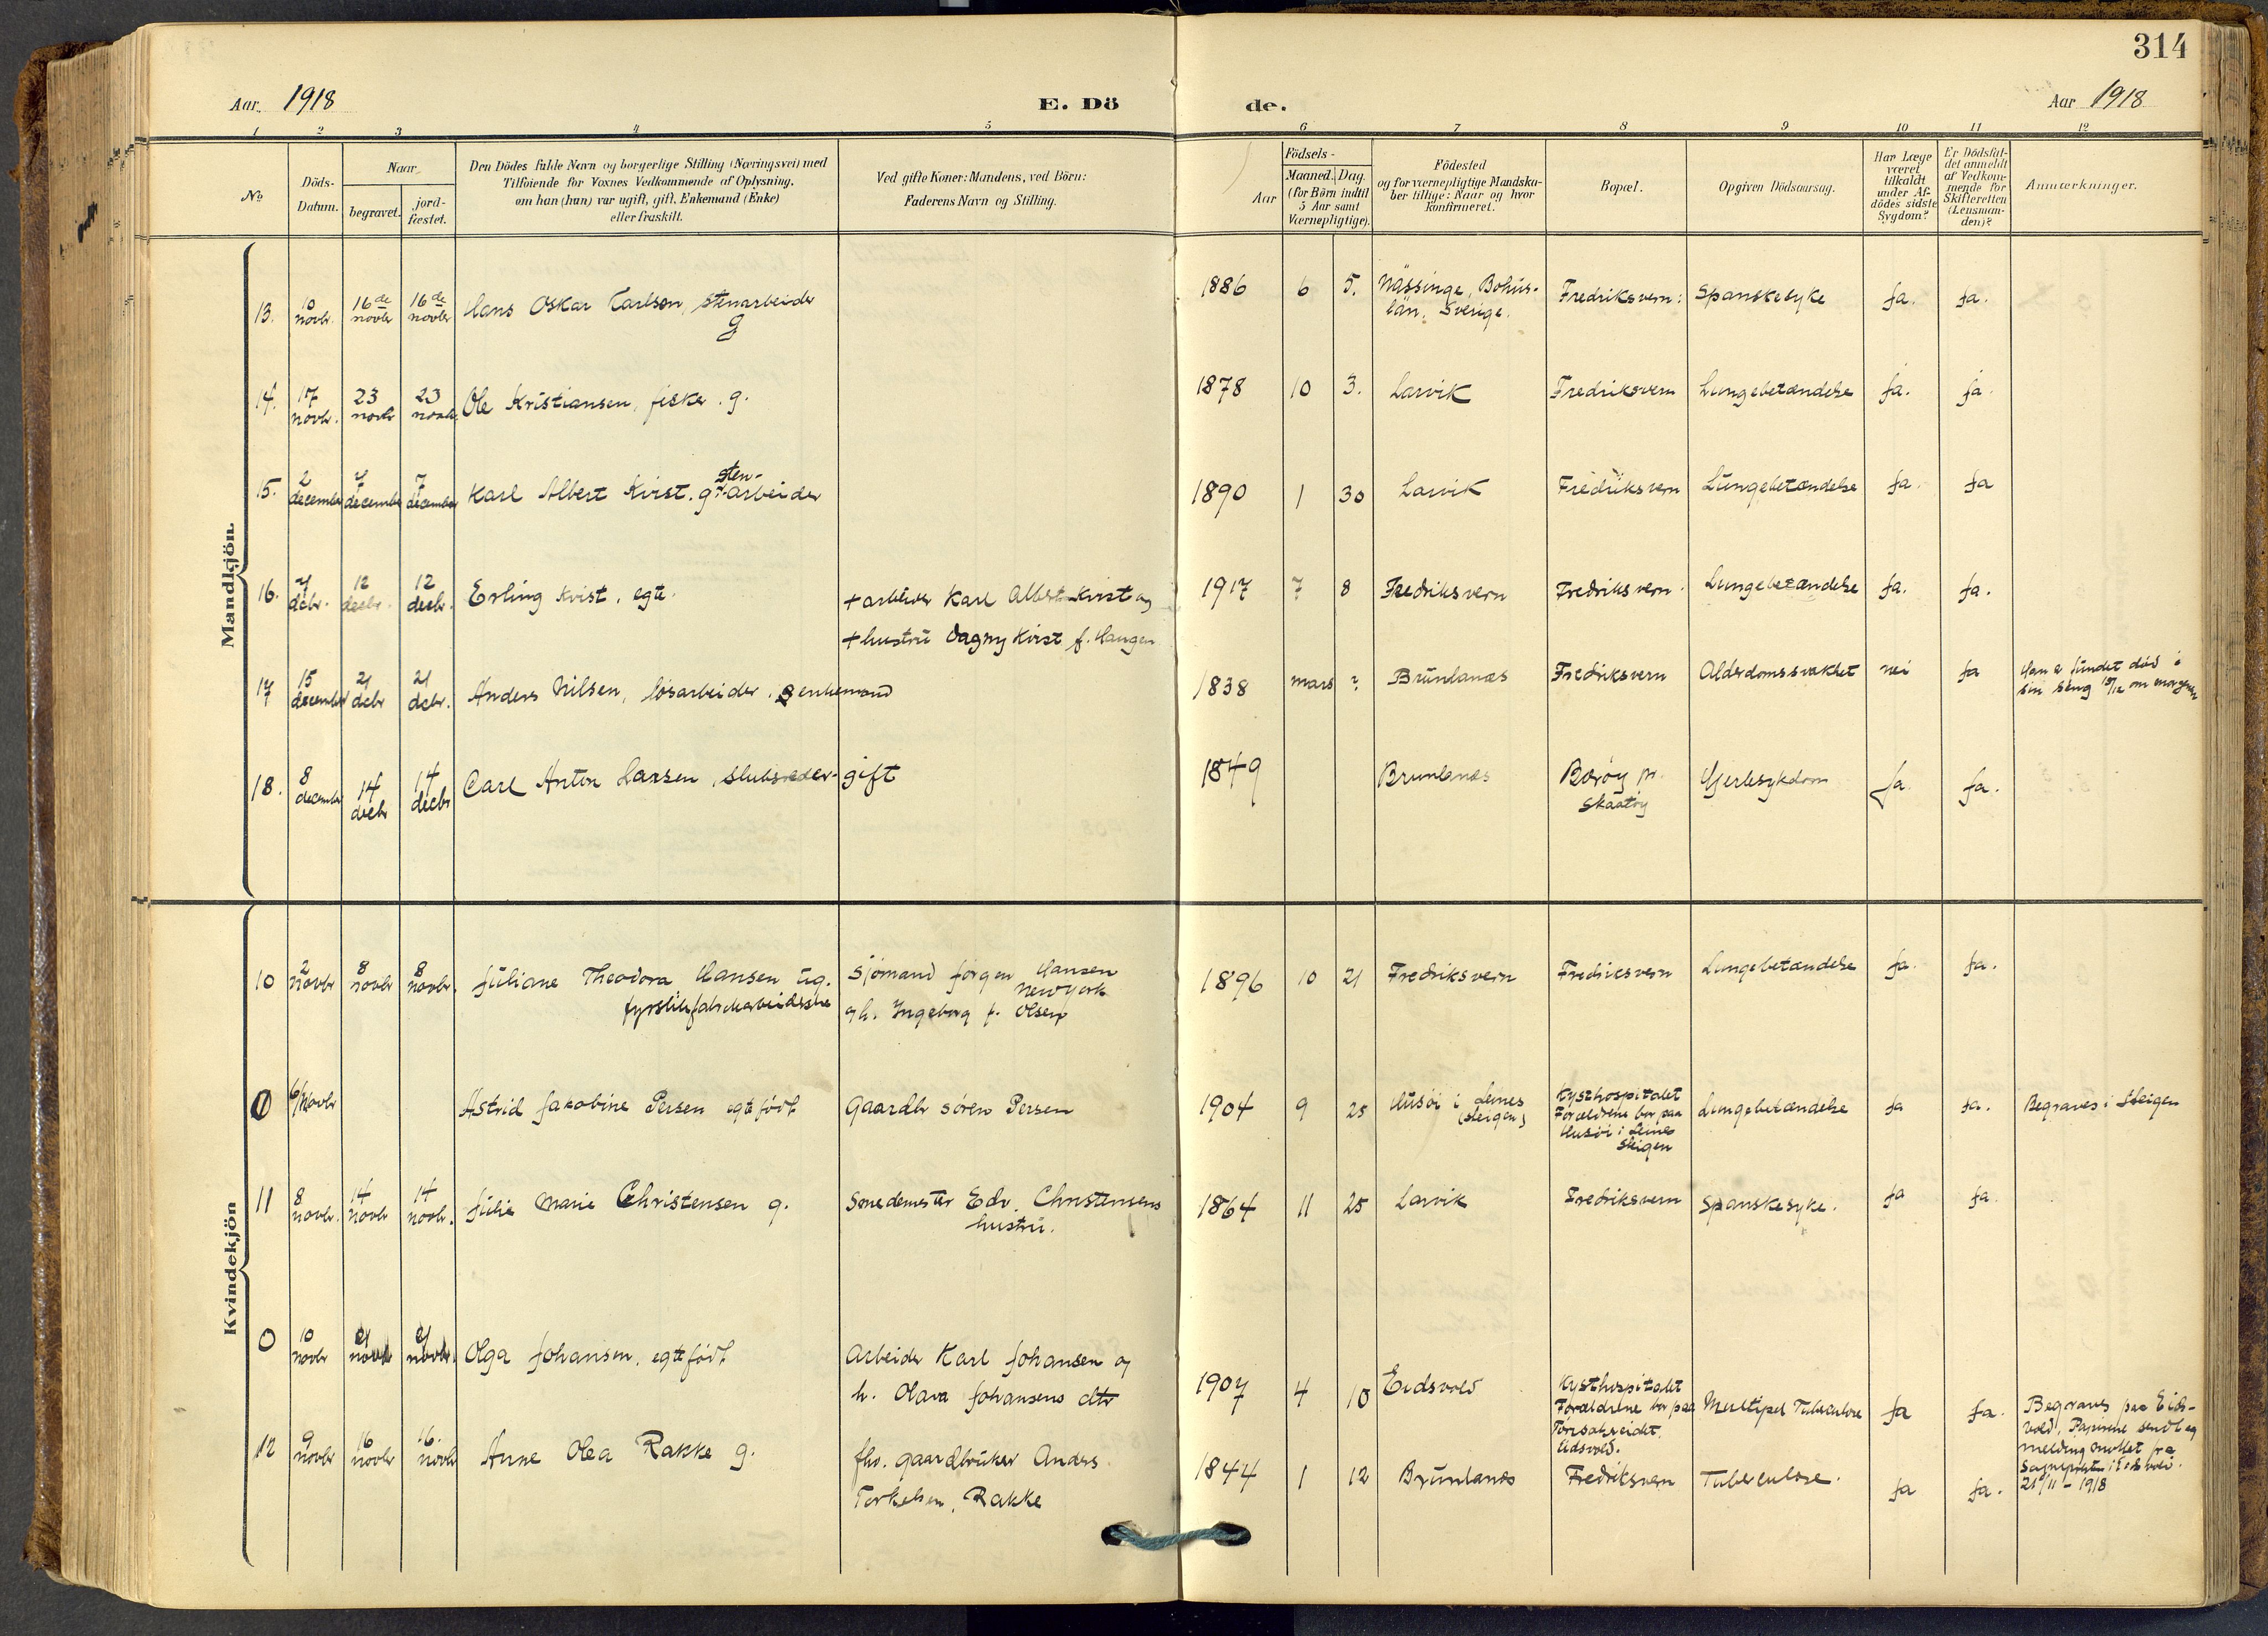 314
Aar. 1918
E. Dö
de.
Aar 1918
1 2 3 4 5 6 7 8 9 10 11 12
No
Döds-
Datum.
Naar
begravet.
jord-
fæstet.
Den Dödes fulde Navn og borgerlige Stilling (Næringsvei) med
Tilföiende for Voxnes Vedkommende af Oplysning,
om han (hun) var ugift, gift, Enkemand (Enke)
eller fraskilt.
Ved gifte Koner: Mandens, ved Börn:
Faderens Navn og Stilling.
Aar
Födsels-
Maaned. Dag.
(for Börn indtil
5 Aar samt
Værnepligtige).
Födested
og for værnepligtige Mandska-
ber tillige: Naar og hvor
konfirmeret.
Bopæl.
Opgiven Dödsaarsag.
Har Læge
været
tilkaldt
under Af-
dödes sidste
Sygdom?
Er Dödsfal-
det anmeldt
af Vedkom-
mende for
Skifteretten
(Lensman-
den)?
Anmærkninger.
Mandkjön.
13. 10 novbr. 16de novbr 16de novbr Hans Oskar Karlsen, stenarbeider
g
1886 6 5. Nässinge, Bohus-
län, Sverige. Fredriksvern: Spanskesyke ja. ja.
14. 17 novbr. 23 novbr 23 novbr. Ole Kristiansen, fisker. g. 1878 10 3. Larvik Fredriksvern Lungebetændelse ja. ja.
15. 2 december 7 december 7 december Karl Albert Kvist. g. sten-arbeider 1890 1 30 Larvik Fredriksvern Lungebetændelse ja. ja
16. 7 dcbr. 12 decbr. 12 decbr. Erling Kvist, egte. + arbeider Karl Albert Kvist og
+ hustru Dagny Kvist f. Haugen
1917 7 8 Fredriksvern Fredriksvern. Lungebetændelse ja. ja.
17 15 december 21 dcbr 21 dcbr. Anders Nilsen, løsarbeider, enkemand 1838 mars ? Brunlanæs Fredriksvern Alderdomssvakhet nei ja Han er fundet død i
sin seng 15/12 om morgenen
18. 8 december 14 decbr 14 decbr Carl Anton Larsen, gift 1849 Brunlanæs Barøy pr.
Skaatøy Hjertesykdom ja ja.
Kvindekjön
10 2 novbr 8 novbr 8 novbr. Juliane Theodora Hansen ug.
fyrstikfabrikarbeiderske
Sjømand Jørgen Hansen
New York
og h. Ingeborg f. Olsen
1896 10 21 Fredriksvern Fredriksvern Lungebetændelse ja. ja.
0 6/novbr Astrid Jakobine Persen egte født Gaardbr Søren Persen 1904 9 25 Husøi i Leines
(Steigen)
Kysthospitalet
Forældrene bor paa
Husöi i Leines
Steigen
Lungebetændelse ja ja. Begraves i Steigen
11 8 novbr. 14 novbr 14 novbr. Julie Marie Christensen g. Smedemester Edv. Christensens
hustru.
1864 11 25 Larvik Fredriksvern Spanskesyke. ja ja.
0 10 novbr 21 novbr 21 novbr. Olga Johansen, egte født Arbeider Karl Johansen og
h. Olava Johansens dtr
1907 4 10 Eidsvold Kysthospitalet
Forældrene bor paa
Eidsvold.
Multipel Tuberculose ja ja. Begraves paa Eids-
vold, Papirene sendt og
melding mottet fra
Sogneprsten i Eidsvold.
21/11 - 1918
12 9 novbr 16 novbr 16. novbr Anne Olea Rakke g. fhv. gaardbruker Anders
Torkelsen, Rakke
1844 1 12 Brunlanæs Fredriksvern Tuberculose. ja ja.